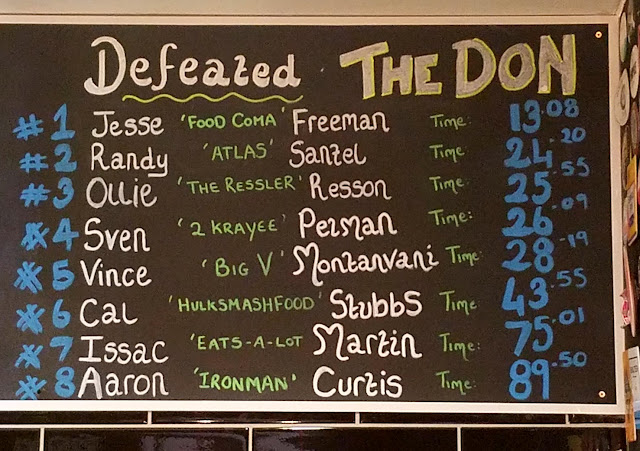 Defeated THE DON
#1 Jesse 'FOOD COMA' Freeman Time: 13.08
#2 Randy 'ATLAS' Santel Time: 24.20
#3 Ollie 'THE RESSLER' Resson Time: 25.55
#4 Sven '2 KRAYEE' Perman Time: 26.09
#5 Vince 'BIG V' Montanvani Time: 28.19
#6 Cal 'HULKSMASHFOOD' Stubbs Time: 43.55
#7 Issac 'EATS-A-LOT Martin Time: 75.01
#8 Aaron 'IRONMAN' Curtis Time: 89.50